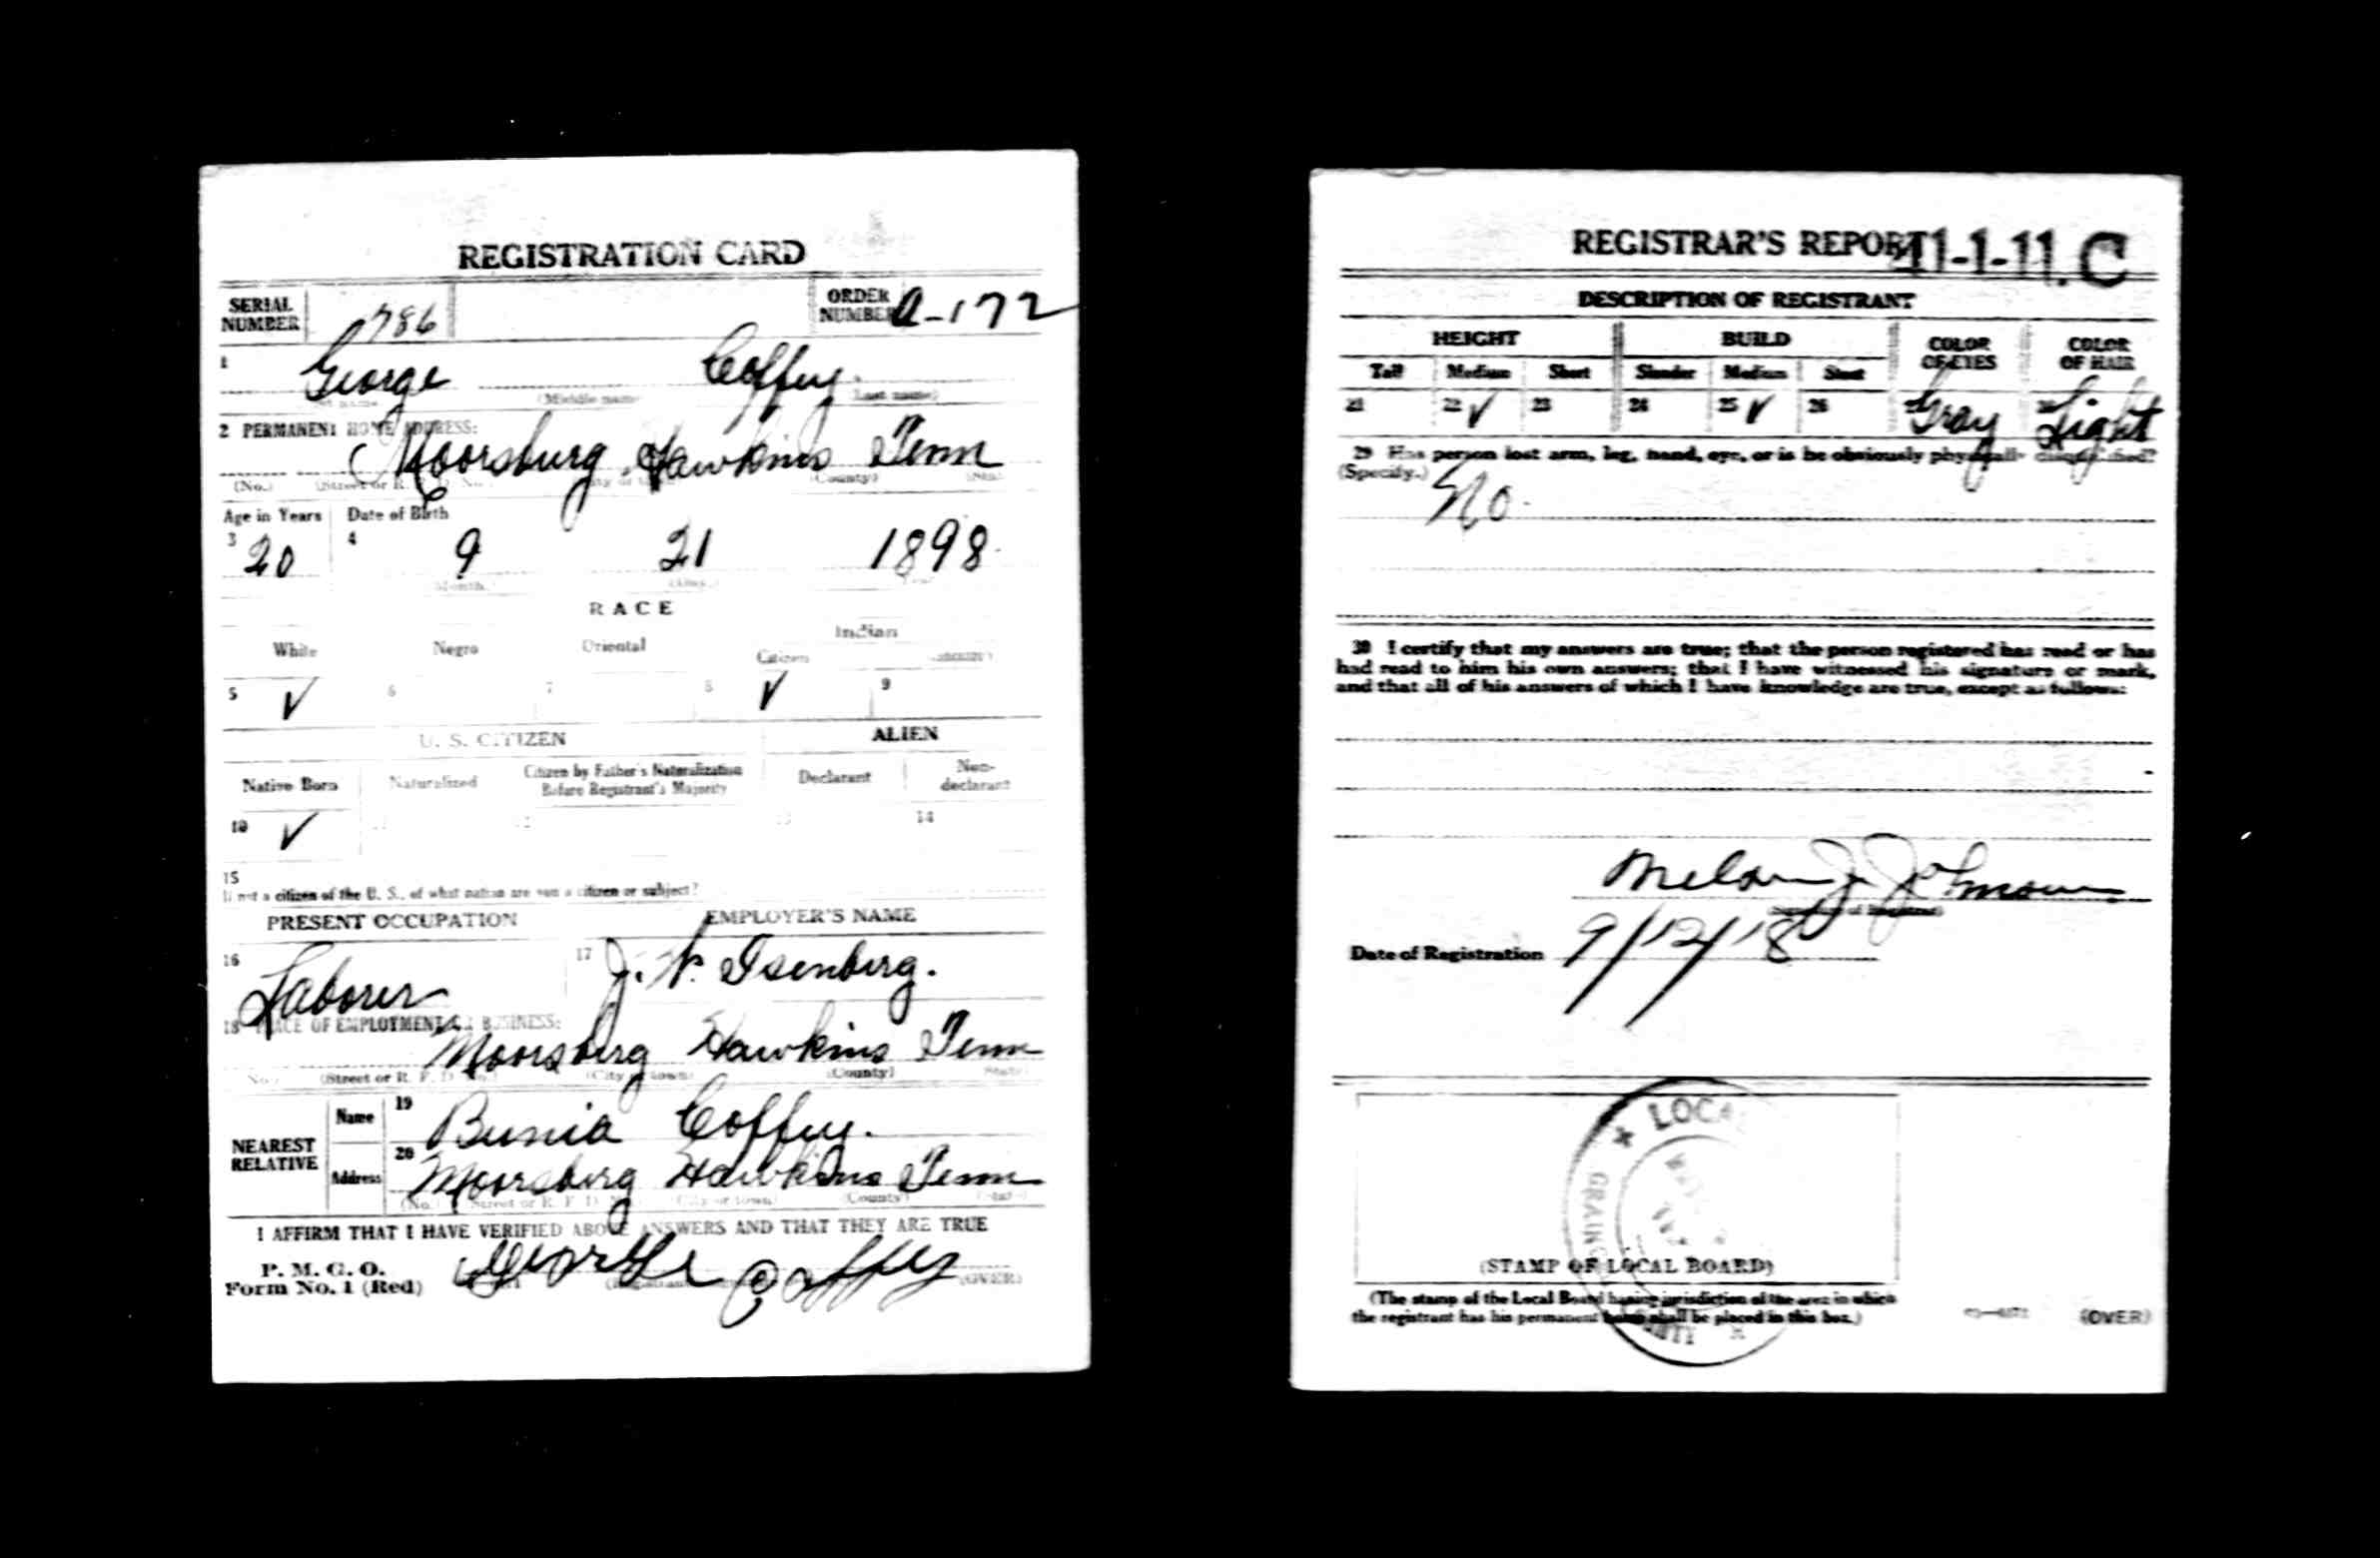 REGISTRATION CARD
SERIAL NUMBER 786 ORDER NUMBER A-172
1 George Coffey.
(Middle name) (Last name)
2 PERMANENT HOME ADDRESS:
Moorsburg Hawkins Tenn
(No.) (Street or R. (County)
Age in Years Date of Birth
3 20 4 9 21 1898
RACE
White Negro Oriental Indian
Citizen
5 V 6 7 8 V 9
U. S. CITIZEN ALIEN
Native Born Naturalized Citizen by Father's Naturalization Before Registrant's Majority Declarant Non-declarant
10 V 14
15
If not a citizen of the U. S., of what nation are you a citizen or subject?
PRESENT OCCUPATION EMPLOYER'S NAME
16 Laborer 17 J. N. Isenberg.
18 PLACE OF EMPLOYMENT OR BUSINESS:
Moorsberg Hawkins Tenn
(Street or R. F. D. (City or town) (County)
NEAREST RELATIVE
Name 19 Bunia Coffey.
Address 20 Moorsberg Hawkins Tenn
(No.) (Street or R. F. D. (City or town) (County)
I AFFIRM THAT I HAVE VERIFIED ABOVE ANSWERS AND THAT THEY ARE TRUE
P. M. G. O.
Form No. 1 (Red) George Coffey (OVER)
REGISTRAR'S REPORT 41-1-11. C
DESCRIPTION OF REGISTRANT
HEIGHT BUILD COLOR OF EYES COLOR OF HAIR
Tall Medium Short Slender Medium Stout
21 22 V 23 24 25 V 26 Gray Light
29 Has person lost arm, leg, hand, eye, or is he obviously physically disqualified?
(Specify.) No.
30 I certify that my answers are true; that the person registered has read or has
had read to him his own answers; that I have witnessed his signature or mark,
and that all of his answers of which I have knowledge are true, except as follows:
J. Johnson
Date of Registration 9/12/18
LOCAL
(STAMP OF LOCAL BOARD)
(The stamp of the Local Board having jurisdiction of the area in which
the registrant has his permanent home shall be placed in this box.)
(OVER)